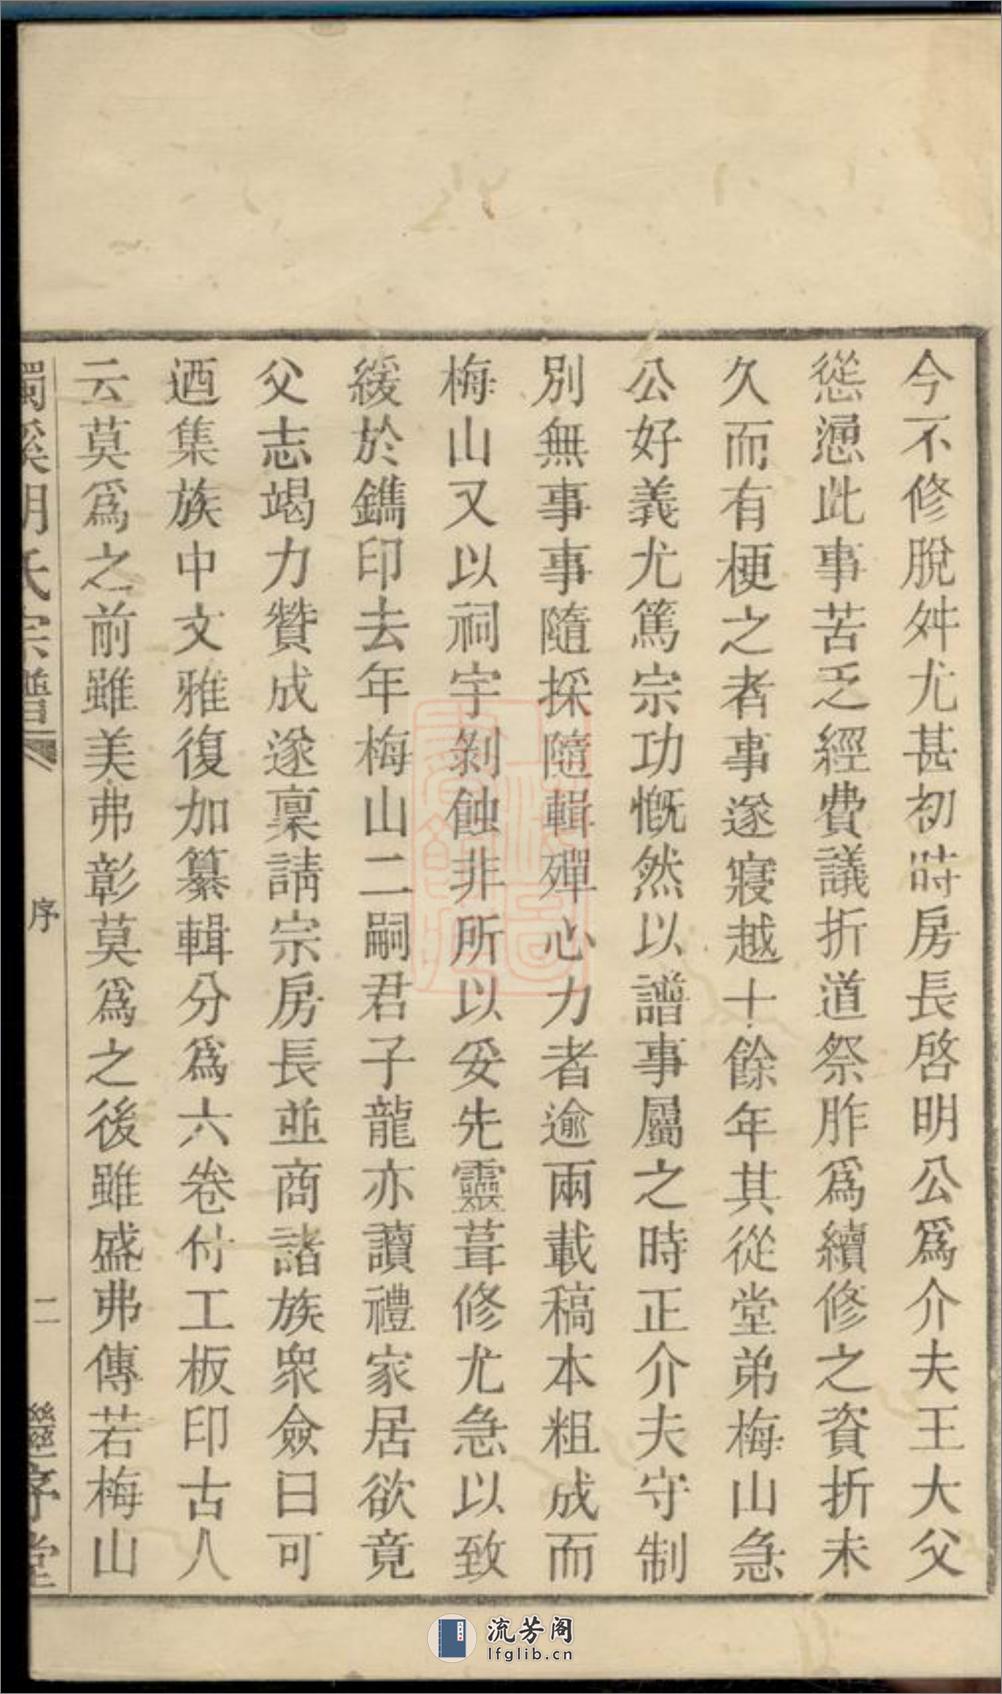 今不修脫舛尤甚初時房長啓明公爲介夫王大父
慫慂此事苦乏經費議折道祭胙爲續修之資折未
久而有梗之者事遂寢越十餘年其從堂弟梅山急
公好義尤篤宗功慨然以譜事屬之時正介夫守制
別無事事隨採隨輯殫心力者逾兩載稿本粗成而
梅山又以祠宇剝蝕非所以妥先靈葺修尤急以致
緩於鐫印去年梅山二嗣君子龍亦讀禮家居欲竟
父志竭力贊成遂稟請宗房長並商諸族衆僉曰可
迺集族中文雅復加纂輯分爲六卷付工板印古人
云莫爲之前雖美弗彰莫爲之後雖盛弗傳若梅山
胡氏宗譜 序 二 繼序堂
流芳阁
lfglib.cn